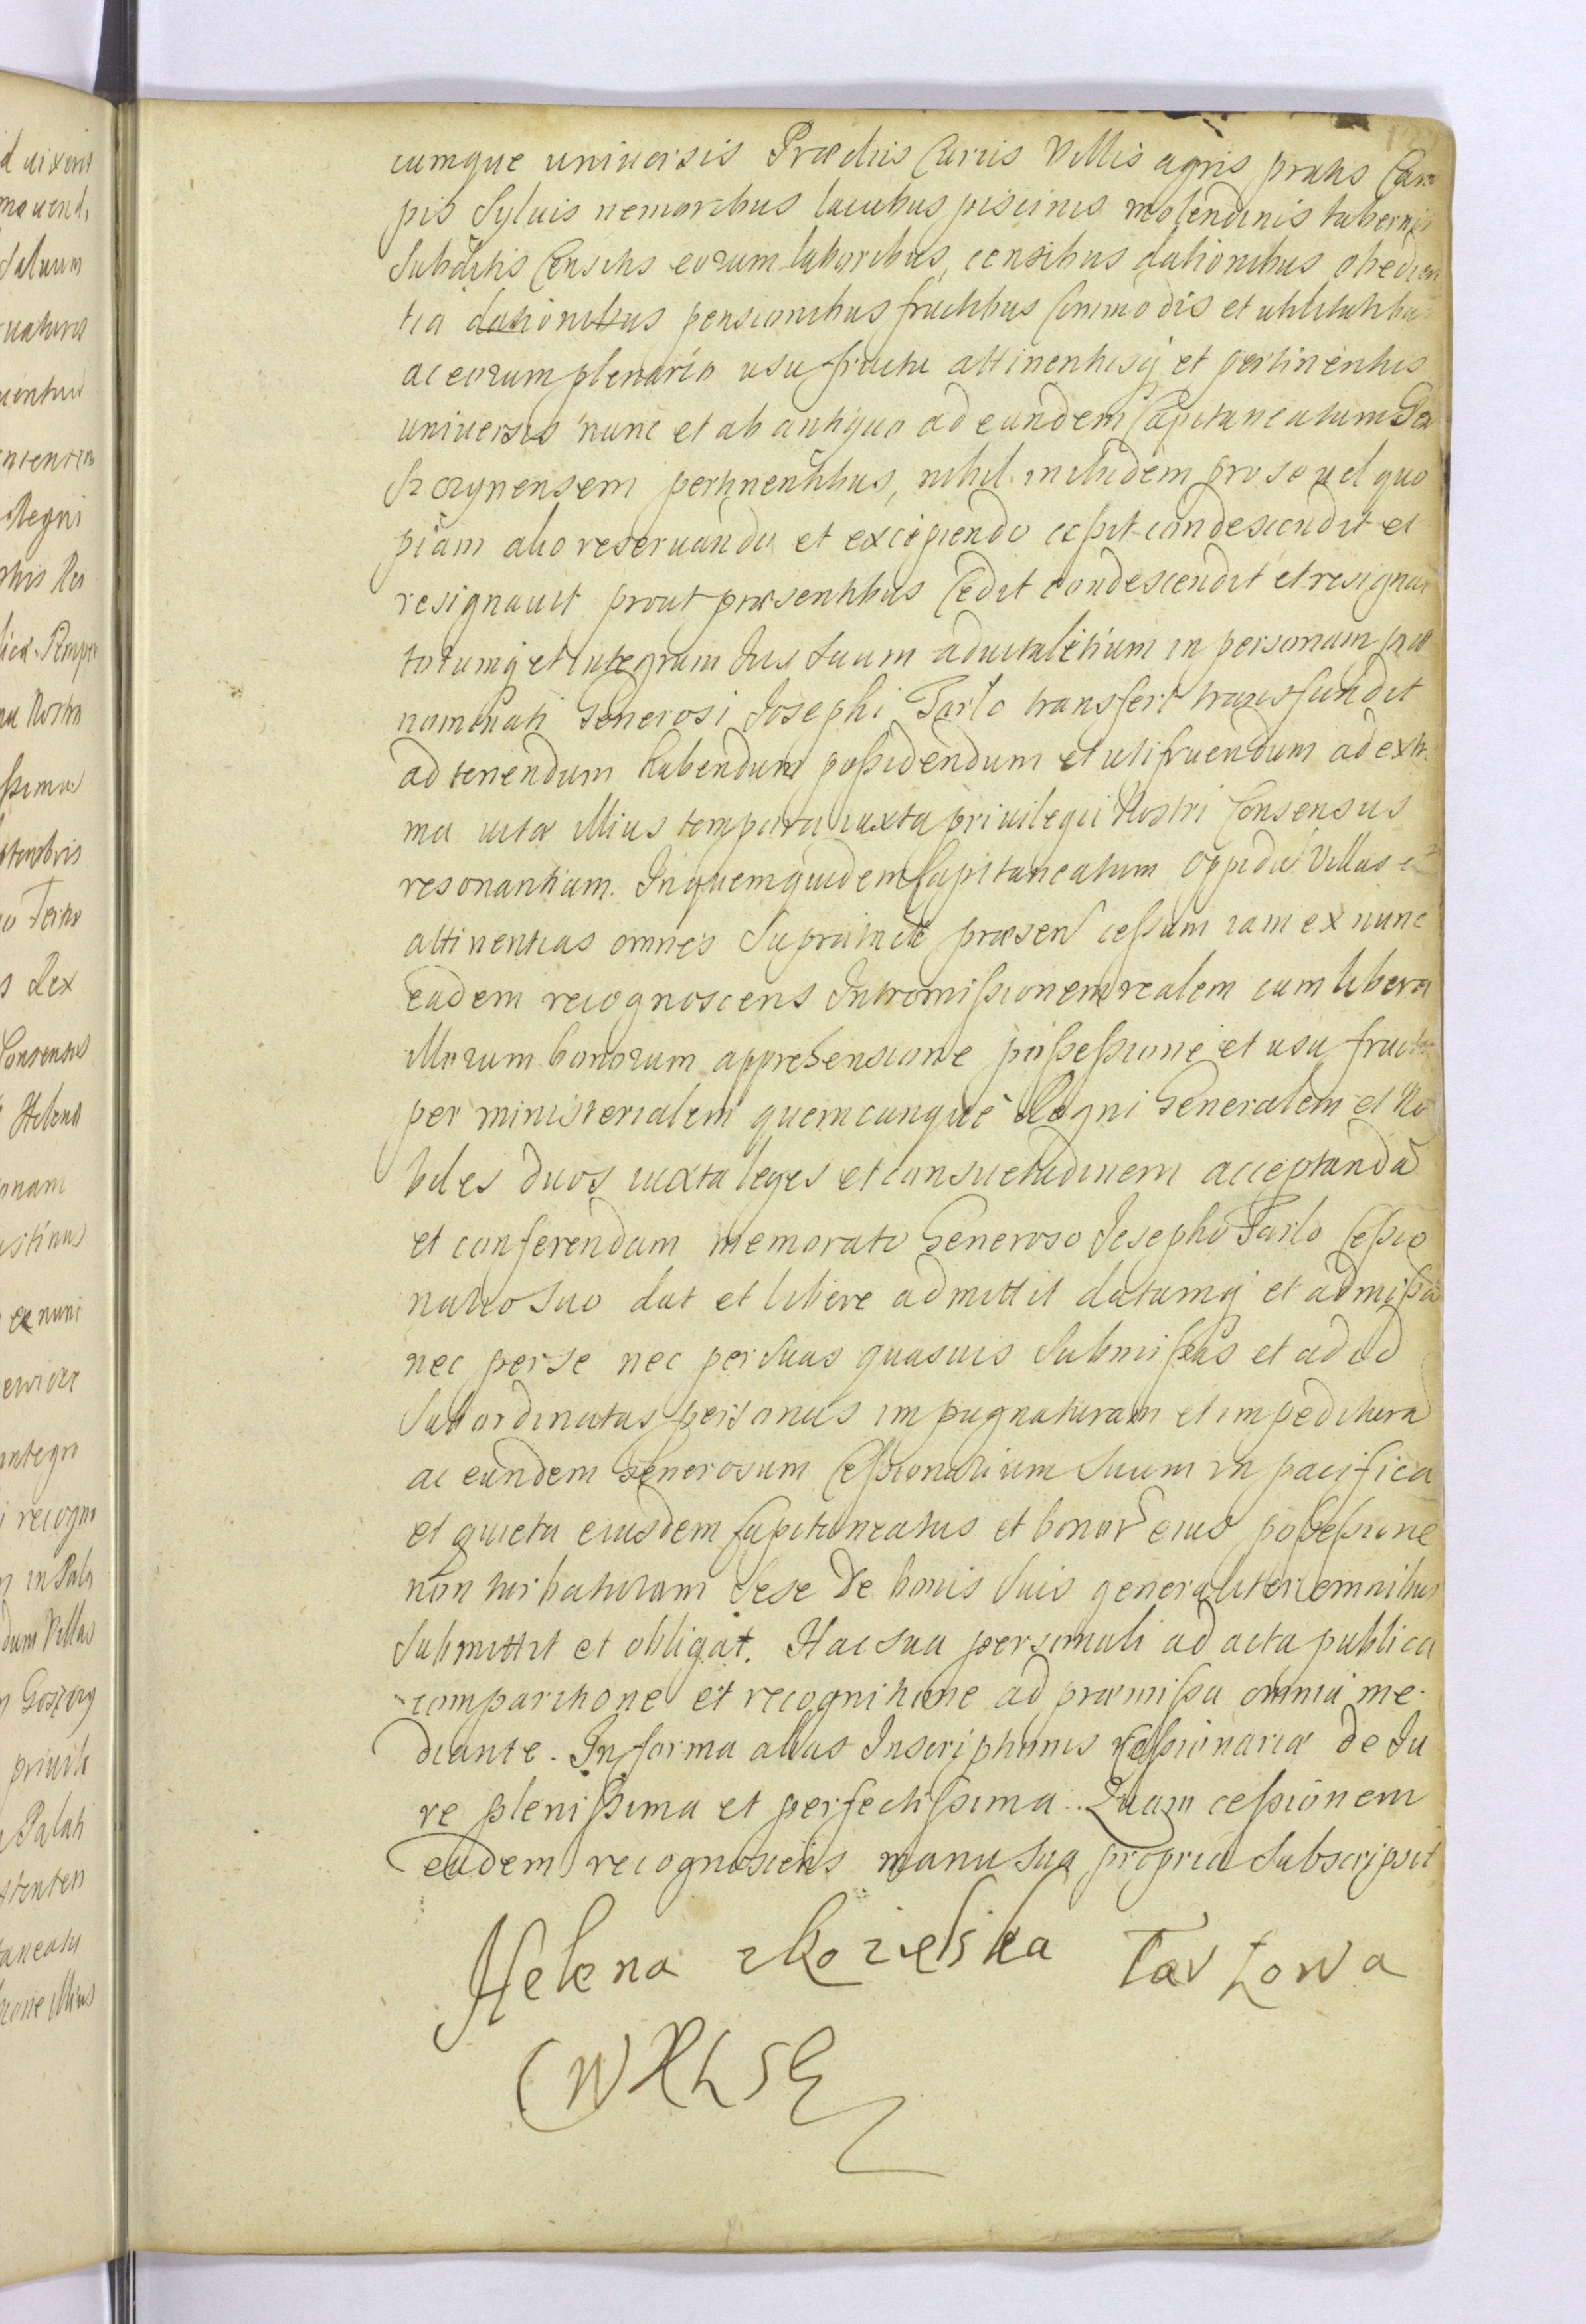 d dixerit
mouend,
Saluum
naturis
uentur
ntentem
Regni
his Rei
lica Semper
Nostra
ssima
stembris
Tertio
s Rex
Consensus
Helena
onam
stinus
ex nunc
integri
i recogn
in Pala
dum Villas
Goszczy
priuile
Palati
stenten
taneatu
tione illius
cumque uniuersis Prædiis Curiis Villis agris pratis Cam
pis Syluis nemoribus lacubus piscinis molendinis tabernis
Subditis Censitis eorum laboribus, censibus dationibus obedien
tia dationibus pensionibus fructibus Commodis et utilitatibus
ac eorum plenario usu fructu attinentiisq et pertinentiis
uniuersis nunc et ab antiquo ad eundem Capitaneatum Go
szczynensem pertinentibus, nihil inibidem pro se uel quo
piam alio reseruando et excipiendo cessit condescendit et
resignauit prout præsentibus Cedit condescendit et resignat
totumq et integrum Ius Suum aduitalitium in personam præ
nominati Generosi Josephi Tarlo transfert transfundit
ad tenendum habendum possidendum et utifruendum ad extre
ma uitæ illius tempora iuxta priuilegii Nostri Consensus
resonantiam. In quem quidem Capitaneatum Oppidū Villas et
attinentias omnes Supra præsen cessum iam ex nunc
eadem recognoscens Intromissionem realem cum libera
illorum bonorum apprehensione possessione et usu fructu
per ministerialem quemcunque Regni Generalem et No
biles duos iuxta leges et consuetudinem acceptandā
et conferendam memorato Generoso Josepho Tarlo Cessio
nario Suo dat et libere admittit datamq et admissā
nec per se nec per Suas quasuis Submissas et ad id
Subordinatas personas impugnaturam et impediturā
ac eundem Generosum Cessionarium Suum in pacifica
et quieta eiusdem Capitaneatus et bonor eius possessione
non turbaturam Sese De bonis Suis generaliter omnibus
Submittit et obligat. Hac Sua personali ad acta publica
comparitione et recognitione ad præmissa omnia me
diante. In forma alias Inscriptionis Cessionariæ de Iu
re plenissima et perfectissima. Quam cessionem
eadem recognoscens manu Sua propria Subscripsit
Helena Tarłowa
CWKLSG